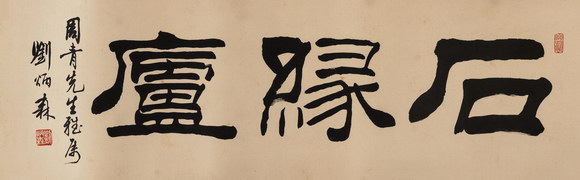 石緣廬
周青先生雅属
劉炳森